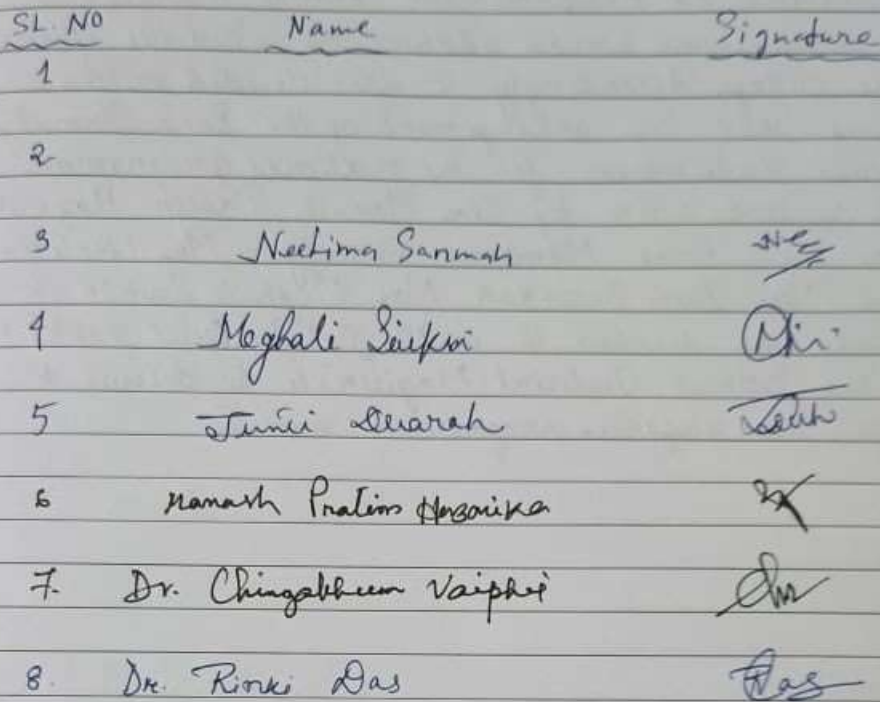 SL. NO Name Signature
1
2
3 Neelima Sanmah
4 Meghali Saikia
5 Junti Duarah
6 Manash Pratim Hazarika
7. Dr. Vaiphei
8. Dr. Rinki Das Das